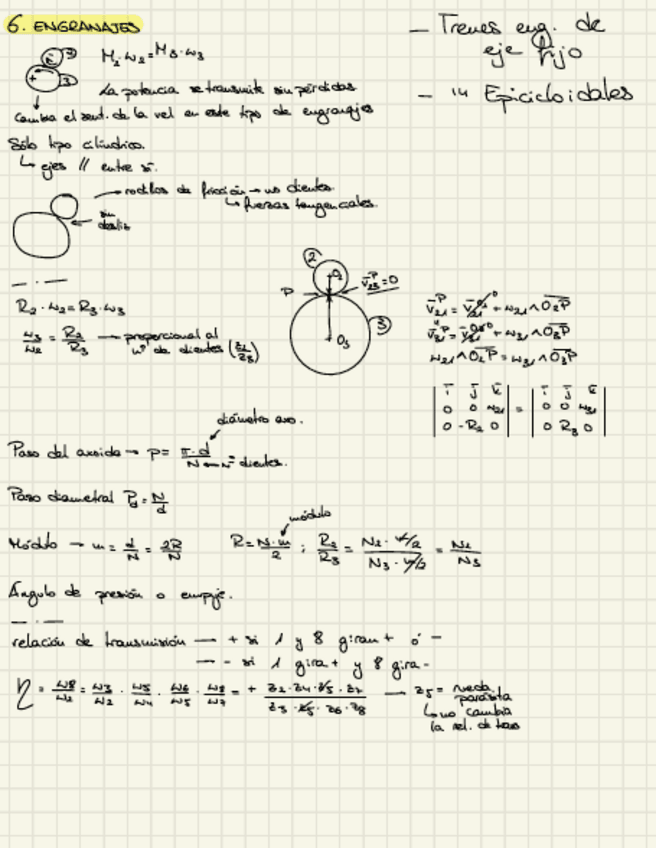 6. ENGRANAJES
M₂·ω₂ = M₃·ω₃
La potencia se transmite sin pérdidas
cambia el sent. de la vel en este tipo de engranajes
Sólo tipo cilíndrico.
↳ ejes // entre sí.
rodillos de fricción → no dientes.
↳ fuerzas tangenciales.
sin desliz
— Trenes eng. de
eje fijo
— " Epicicloidales
R₂·ω₂ = R₃·ω₃
ω₃/ω₂ = R₂/R₃ → proporcional al
nº de dientes (z₂/z₃)
2
O₂
P
v₂₃ᴾ = 0
O₃
3
v₂₁ᴾ = + ω₂₁ ∧ O₂P
v₃₁ᴾ = + ω₃₁ ∧ O₃P
ω₂₁ ∧ O₂P = ω₃₁ ∧ O₃P
| i j k | | i j k |
| 0 0 ω₂₁ | = | 0 0 ω₃₁ |
| 0 -R₂ 0 | | 0 R₃ 0 |
diámetro axo.
Paso del axoide → p = π·d/N → nº dientes.
Paso diametral P_d = N/d
módulo
Módulo → m = d/N = 2R/N R = N·m/2 ; R₂/R₃ = N₂·m/2 / N₃·m/2 = N₂/N₃
Ángulo de presión o empuje.
relación de transmisión — + si 1 y 8 giran + ó -
— - si 1 gira + y 8 gira -
η = ω₈/ω₂ = ω₃/ω₂ · ω₅/ω₄ · ω₆/ω₅ · ω₈/ω₇ = + z₂·z₄·z₅·z₇ / z₃·z₅·z₆·z₈ — z₅ = rueda
parásita
↳ no cambia
la rel. de trans